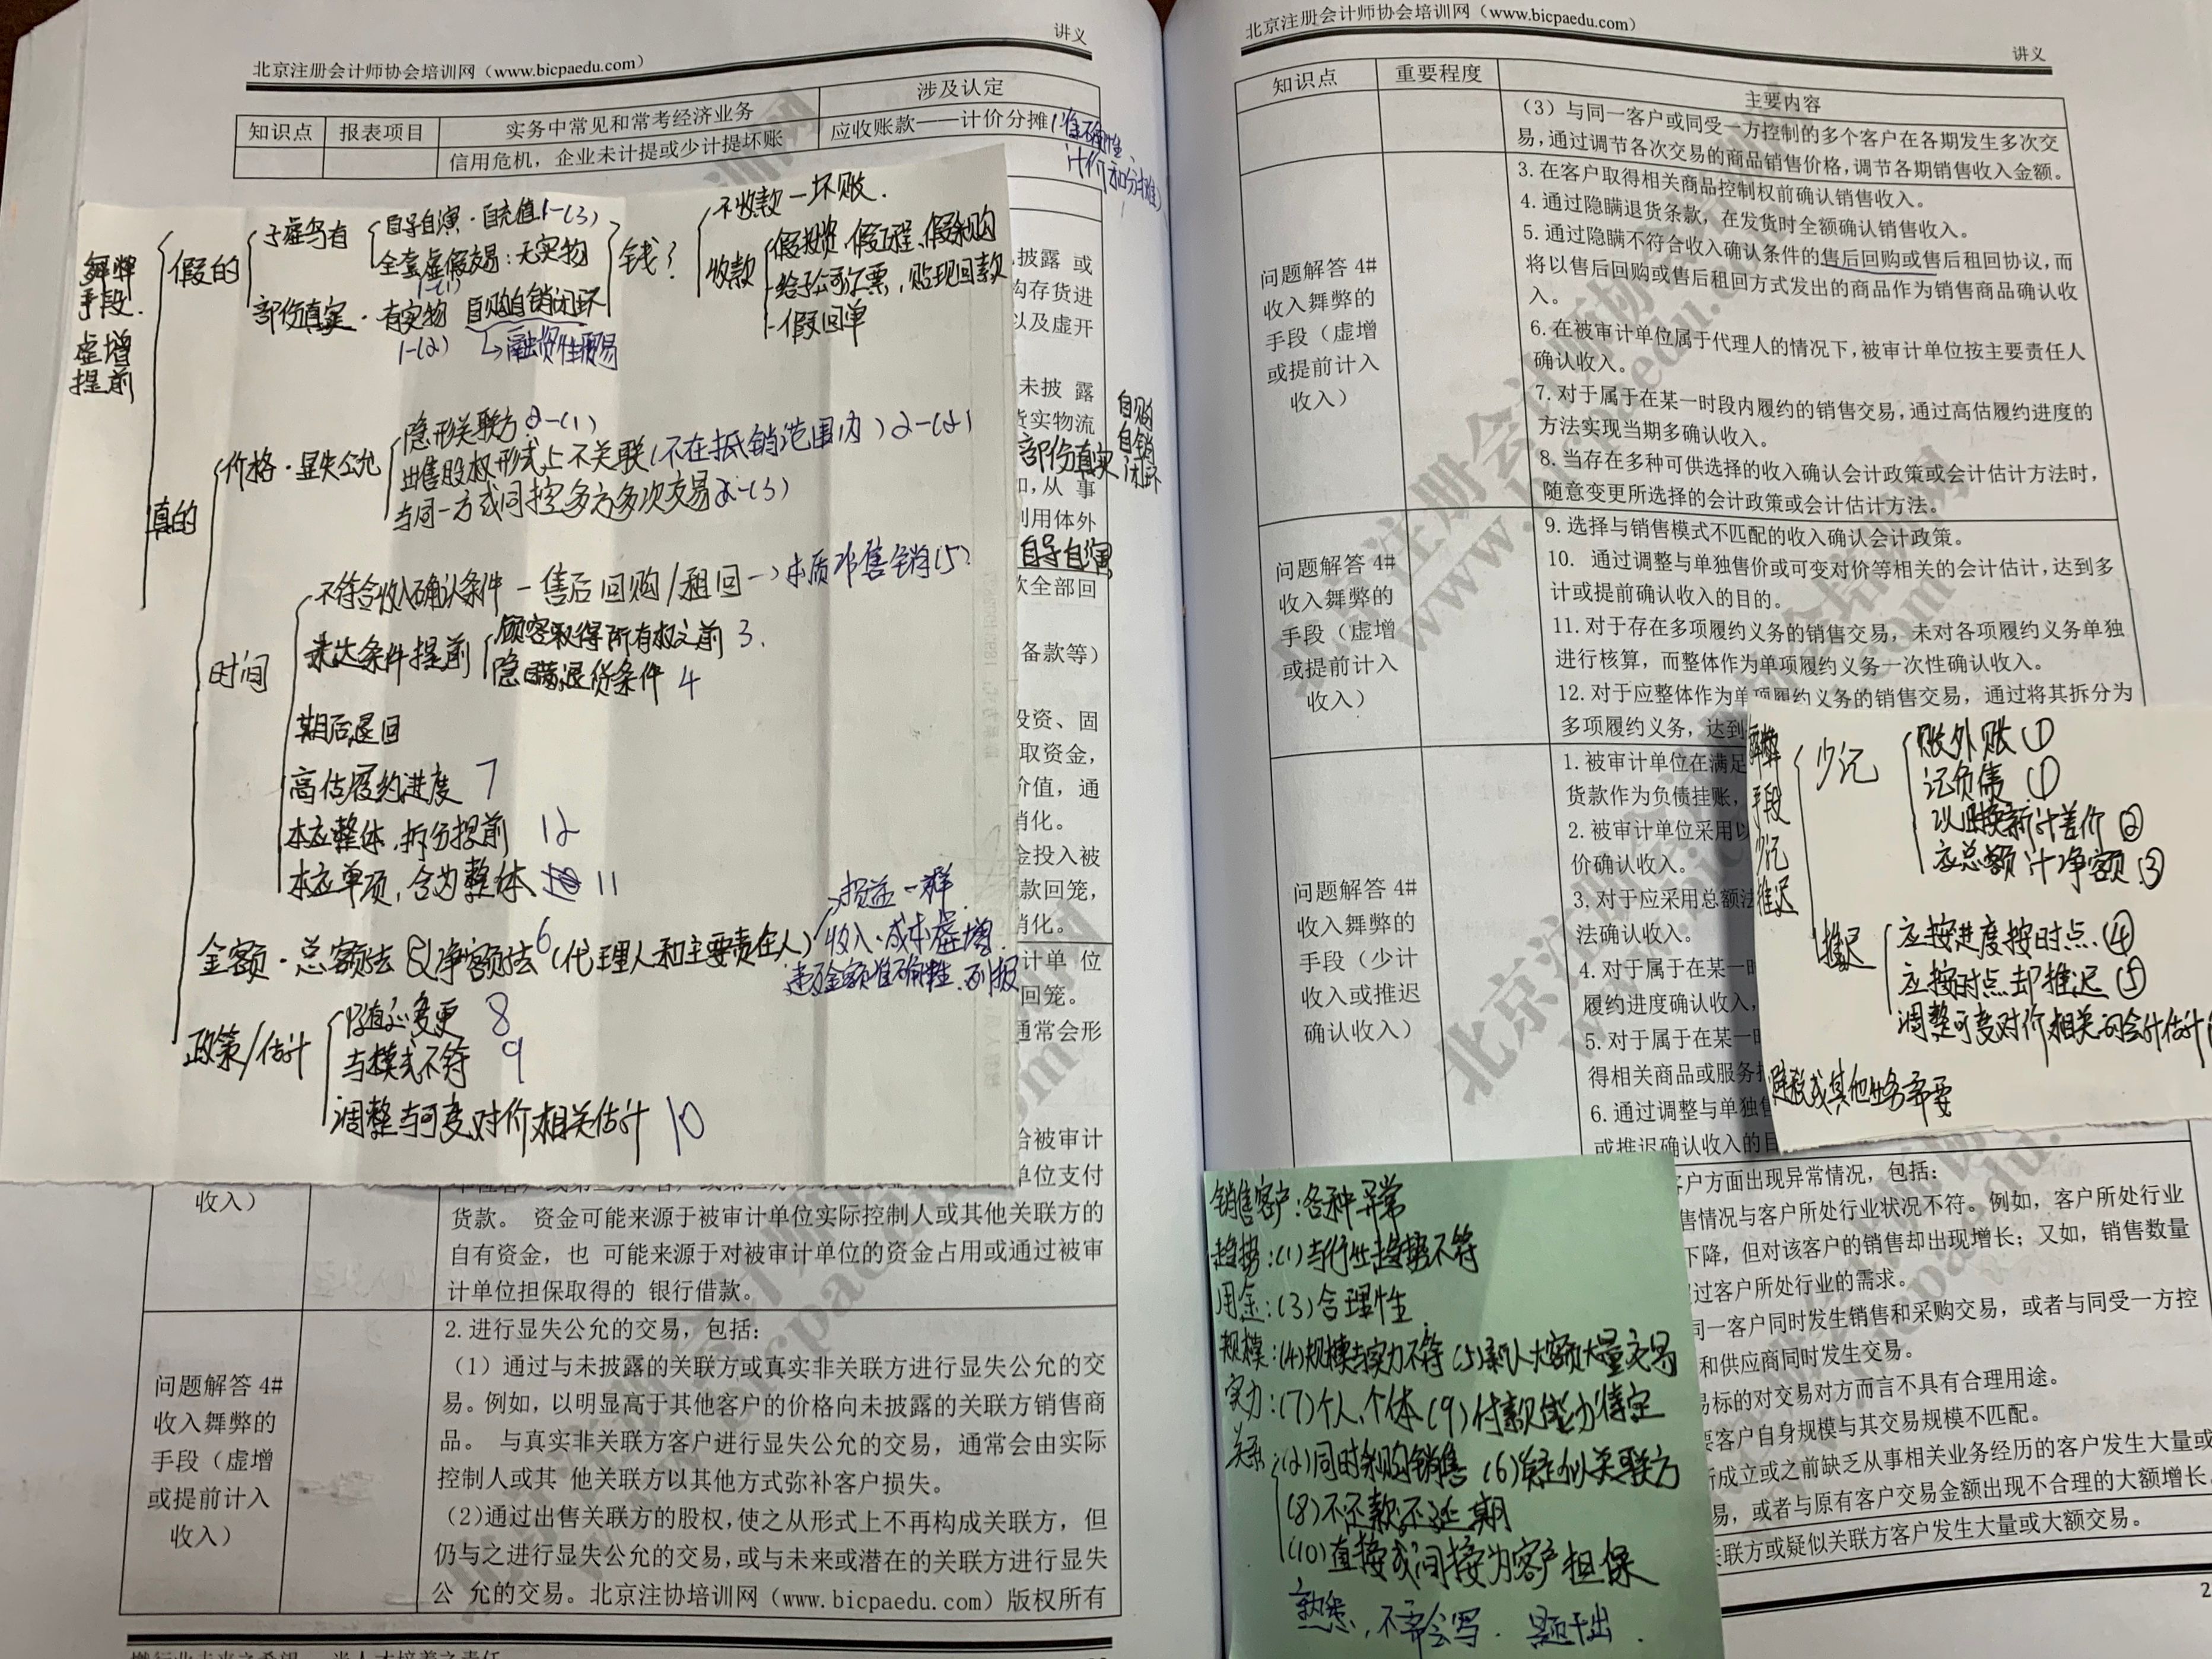 北京注册会计师协会培训网（www.bicpaedu.com）
讲义
知识点
报表项目
实务中常见和常考经济业务
涉及认定
信用危机，企业未计提或少计提坏账
应收账款——计价分摊（准确性、
计价和分摊）
舞弊
手段.
虚增
提前
假的
子虚乌有
自导自演·自充值1-(3)
全套虚假交易：无实物
1-(1)
部份真实·有实物 自购自销闭环
1-(2) ↳融资性贸易
钱？
不收款—坏账.
收款
假投资、假工程、假采购
给子公司汇票，贴现回款
假回单
真的
价格·显失公允
隐形关联方2-(1)
出售股权形式上不关联(不在抵销范围内)2-(2)
与同一方或同控多方多次交易2-(3)
时间
不符合收入确认条件—售后回购/租回→本质非售销(5)
未达条件提前
顾客取得所有权之前 3.
隐瞒退货条件 4
期后退回
高估履约进度 7
本应整体，拆分提前 12
本应单项，合为整体 11
金额·总额法&净额法6(代理人和主要责任人)
→损益一样
收入、成本虚增
违反金额准确性、列报
政策/估计
随意变更 8
与模式不符 9
调整与可变对价相关估计 10
披露 或
购存货进
以及虚开
未披 露
货实物流
部份真实
自购
自销
闭环
如,从 事
利用体外
自导自演
次全部回
备款等）
投资、固
取资金，
价值，通
消化。
金投入被
款回笼，
消化。
计单 位
回笼。
通常会形
给被审计
单位支付
收入）
货款。 资金可能来源于被审计单位实际控制人或其他关联方的
自有资金，也 可能来源于对被审计单位的资金占用或通过被审
计单位担保取得的 银行借款。
问题解答 4#
收入舞弊的
手段（虚增
或提前计入
收入）
2.进行显失公允的交易，包括：
（1）通过与未披露的关联方或真实非关联方进行显失公允的交
易。例如，以明显高于其他客户的价格向未披露的关联方销售商
品。 与真实非关联方客户进行显失公允的交易，通常会由实际
控制人或其 他关联方以其他方式弥补客户损失。
（2）通过出售关联方的股权,使之从形式上不再构成关联方，但
仍与之进行显失公允的交易,或与未来或潜在的关联方进行显失
公 允的交易。北京注协培训网（www.bicpaedu.com）版权所有
北京注册会计师协会培训网（www.bicpaedu.com）
讲义
知识点
重要程度
主要内容
（3）与同一客户或同受一方控制的多个客户在各期发生多次交
易,通过调节各次交易的商品销售价格,调节各期销售收入金额。
问题解答 4#
收入舞弊的
手段（虚增
或提前计入
收入）
3.在客户取得相关商品控制权前确认销售收入。
4.通过隐瞒退货条款,在发货时全额确认销售收入。
5.通过隐瞒不符合收入确认条件的售后回购或售后租回协议,而
将以售后回购或售后租回方式发出的商品作为销售商品确认收
入。
6.在被审计单位属于代理人的情况下,被审计单位按主要责任人
确认收入。
7.对于属于在某一时段内履约的销售交易,通过高估履约进度的
方法实现当期多确认收入。
8.当存在多种可供选择的收入确认会计政策或会计估计方法时,
随意变更所选择的会计政策或会计估计方法。
问题解答 4#
收入舞弊的
手段（虚增
或提前计入
收入）
9.选择与销售模式不匹配的收入确认会计政策。
10. 通过调整与单独售价或可变对价等相关的会计估计,达到多
计或提前确认收入的目的。
11.对于存在多项履约义务的销售交易，未对各项履约义务单独
进行核算，而整体作为单项履约义务一次性确认收入。
12.对于应整体作为单项履约义务的销售交易，通过将其拆分为
多项履约义务，达到
问题解答 4#
收入舞弊的
手段（少计
收入或推迟
确认收入）
1.被审计单位在满足
货款作为负债挂账，
2.被审计单位采用以
价确认收入。
3.对于应采用总额法
法确认收入。
4.对于属于在某一时
履约进度确认收入，
5.对于属于在某一时
得相关商品或服务控
6.通过调整与单独售
或推迟确认收入的目
舞弊
手段
少记
推迟
少记
账外账①
记负债①
以旧换新计差价②
应总额计净额③
推迟
应按进度按时点④
应按时点却推迟⑤
调整可变对价相关的会计估计
避税或其他业务需要
销售客户：各种异常
趋势：(1)与行业趋势不符
用途：(3)合理性
规模：(4)规模与实力不符 (5)新人大额大量交易
实力：(7)个人、个体 (9)付款能力待定
关系：(2)同时采购销售 (6)疑似关联方
(8)不还款不延期
(10)直接或间接为客户担保
熟悉，不需会写. 题干出.
客户方面出现异常情况，包括：
售情况与客户所处行业状况不符。例如，客户所处行业
下降，但对该客户的销售却出现增长；又如，销售数量
过客户所处行业的需求。
同一客户同时发生销售和采购交易，或者与同受一方控
和供应商同时发生交易。
易标的对交易对方而言不具有合理用途。
要客户自身规模与其交易规模不匹配。
新成立或之前缺乏从事相关业务经历的客户发生大量或
易，或者与原有客户交易金额出现不合理的大额增长
关联方或疑似关联方客户发生大量或大额交易。